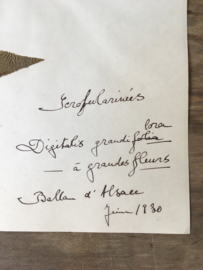 Scrofularinées
flora
Digitalis grandi folia
— à grandes fleurs
Ballon d'Alsace
Juin 1930